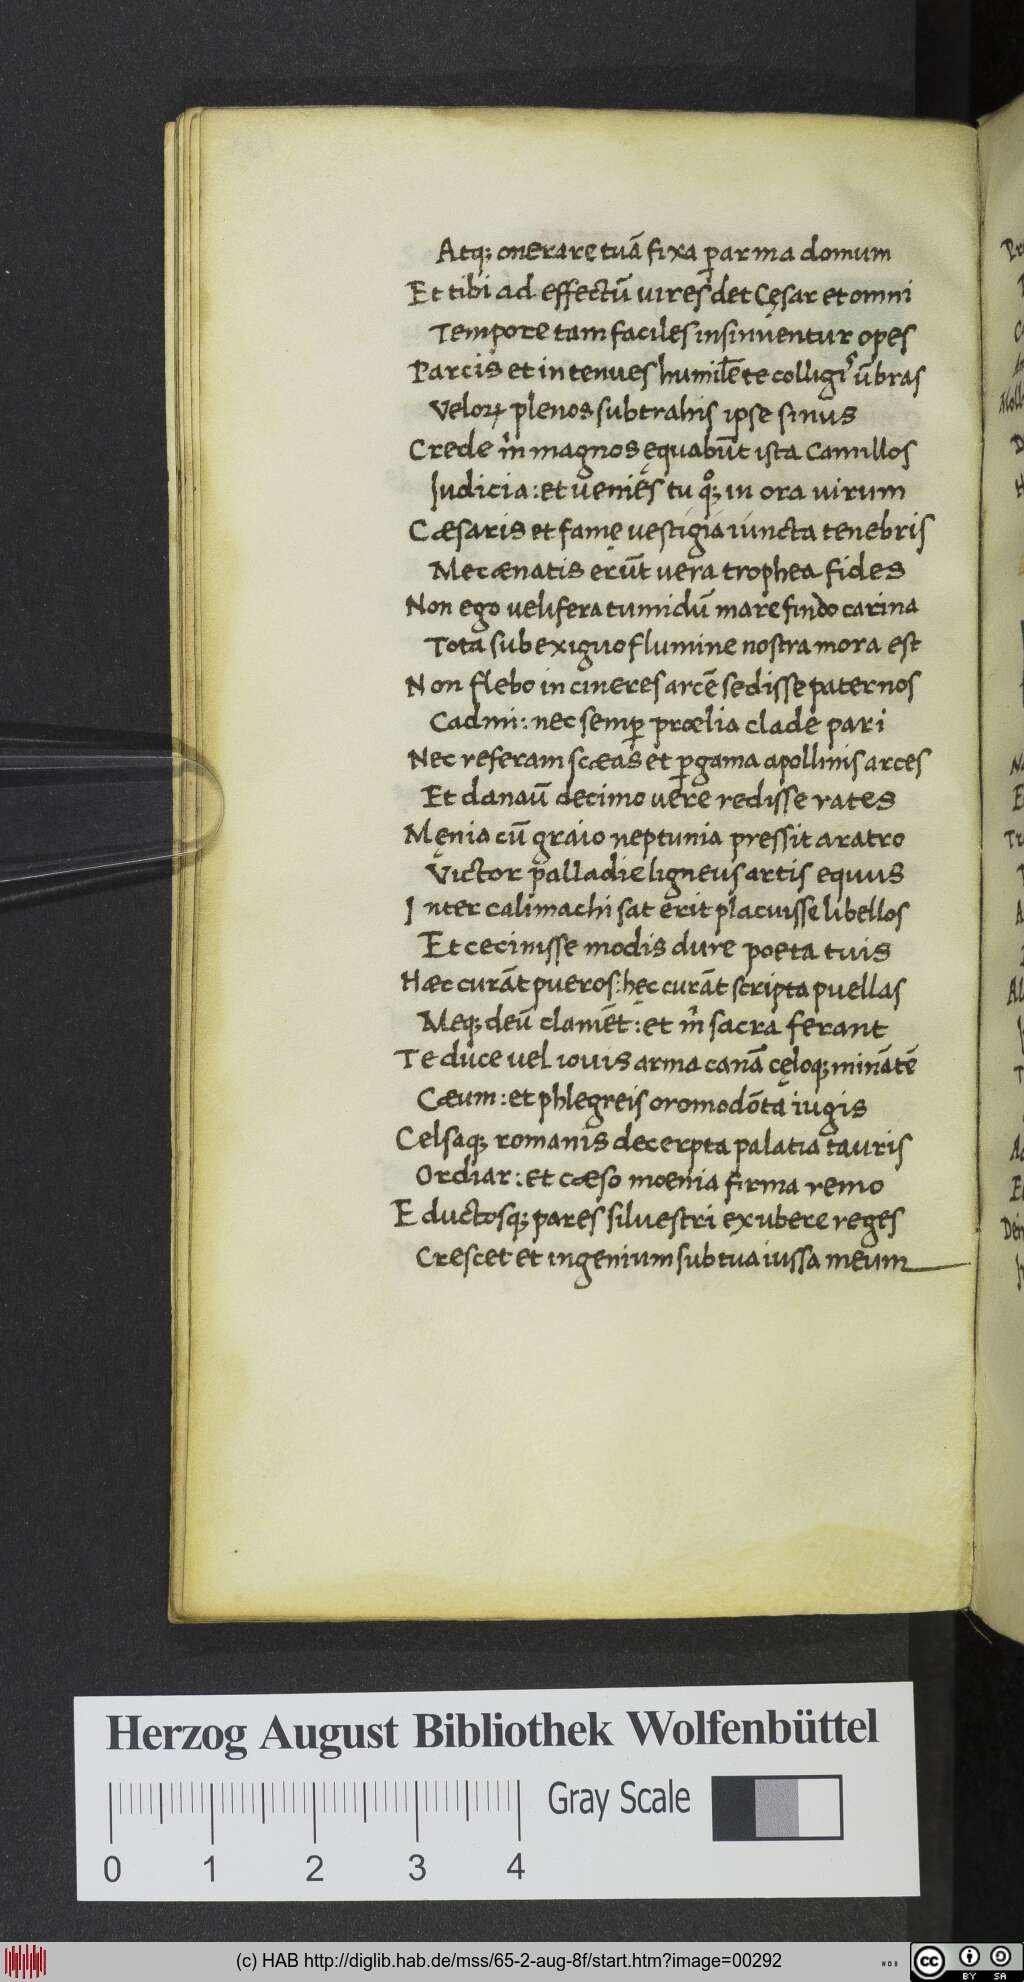 Atq; onerare tuā fixa ꝑ arma domum
Et tibi ad effectū uires det Cęsar et omni
Tempore tam faciles insinuentur opes
Parcis et in tenues humilē te colligis ūbras
Veloꝝ plenos subtrahis ipse sinus
Crede mi magnos ęquabūt ista Camillos
Judicia: et venies tu qoq; in ora uirum
Cæsaris et famę uestigia iuncta tenebris
Mecænatis erūt uera trophea fides
Non ego uelifera tumidū mare findo carina
Tota sub exiguo flumine nostra mora est
Non flebo in cineres arcē sedisse paternos
Cadmi: nec semꝑ prœlia clade pari
Nec referam scæas et ꝑgama apollinis arces
Et danaū decimo uere redisse rates
Męnia cū graio neptunia pressit aratro
Victor palladie ligneus artis equus
Inter calimachi sat erit placuisse libellos
Et cecinisse modis dure poeta tuis
Hæc curāt pueros: hęc curāt scripta puellas
Meq; deū clamēt: et m̄ sacra ferant
Te duce uel iouis arma canā cęloq; minātē
Cæum: et phlegreis oromodōta iugis
Celsaq; romanis decerpta palatia tauris
Ordiar: et cæso moenia firma remo
Eductosq; pares siluestri ex ubere reges
Crescet et ingenium sub tua iussa meum
Herzog August Bibliothek Wolfenbüttel
Gray Scale
0 1 2 3 4
(c) HAB http://diglib.hab.de/mss/65-2-aug-8f/start.htm?image=00292
cc BY SA